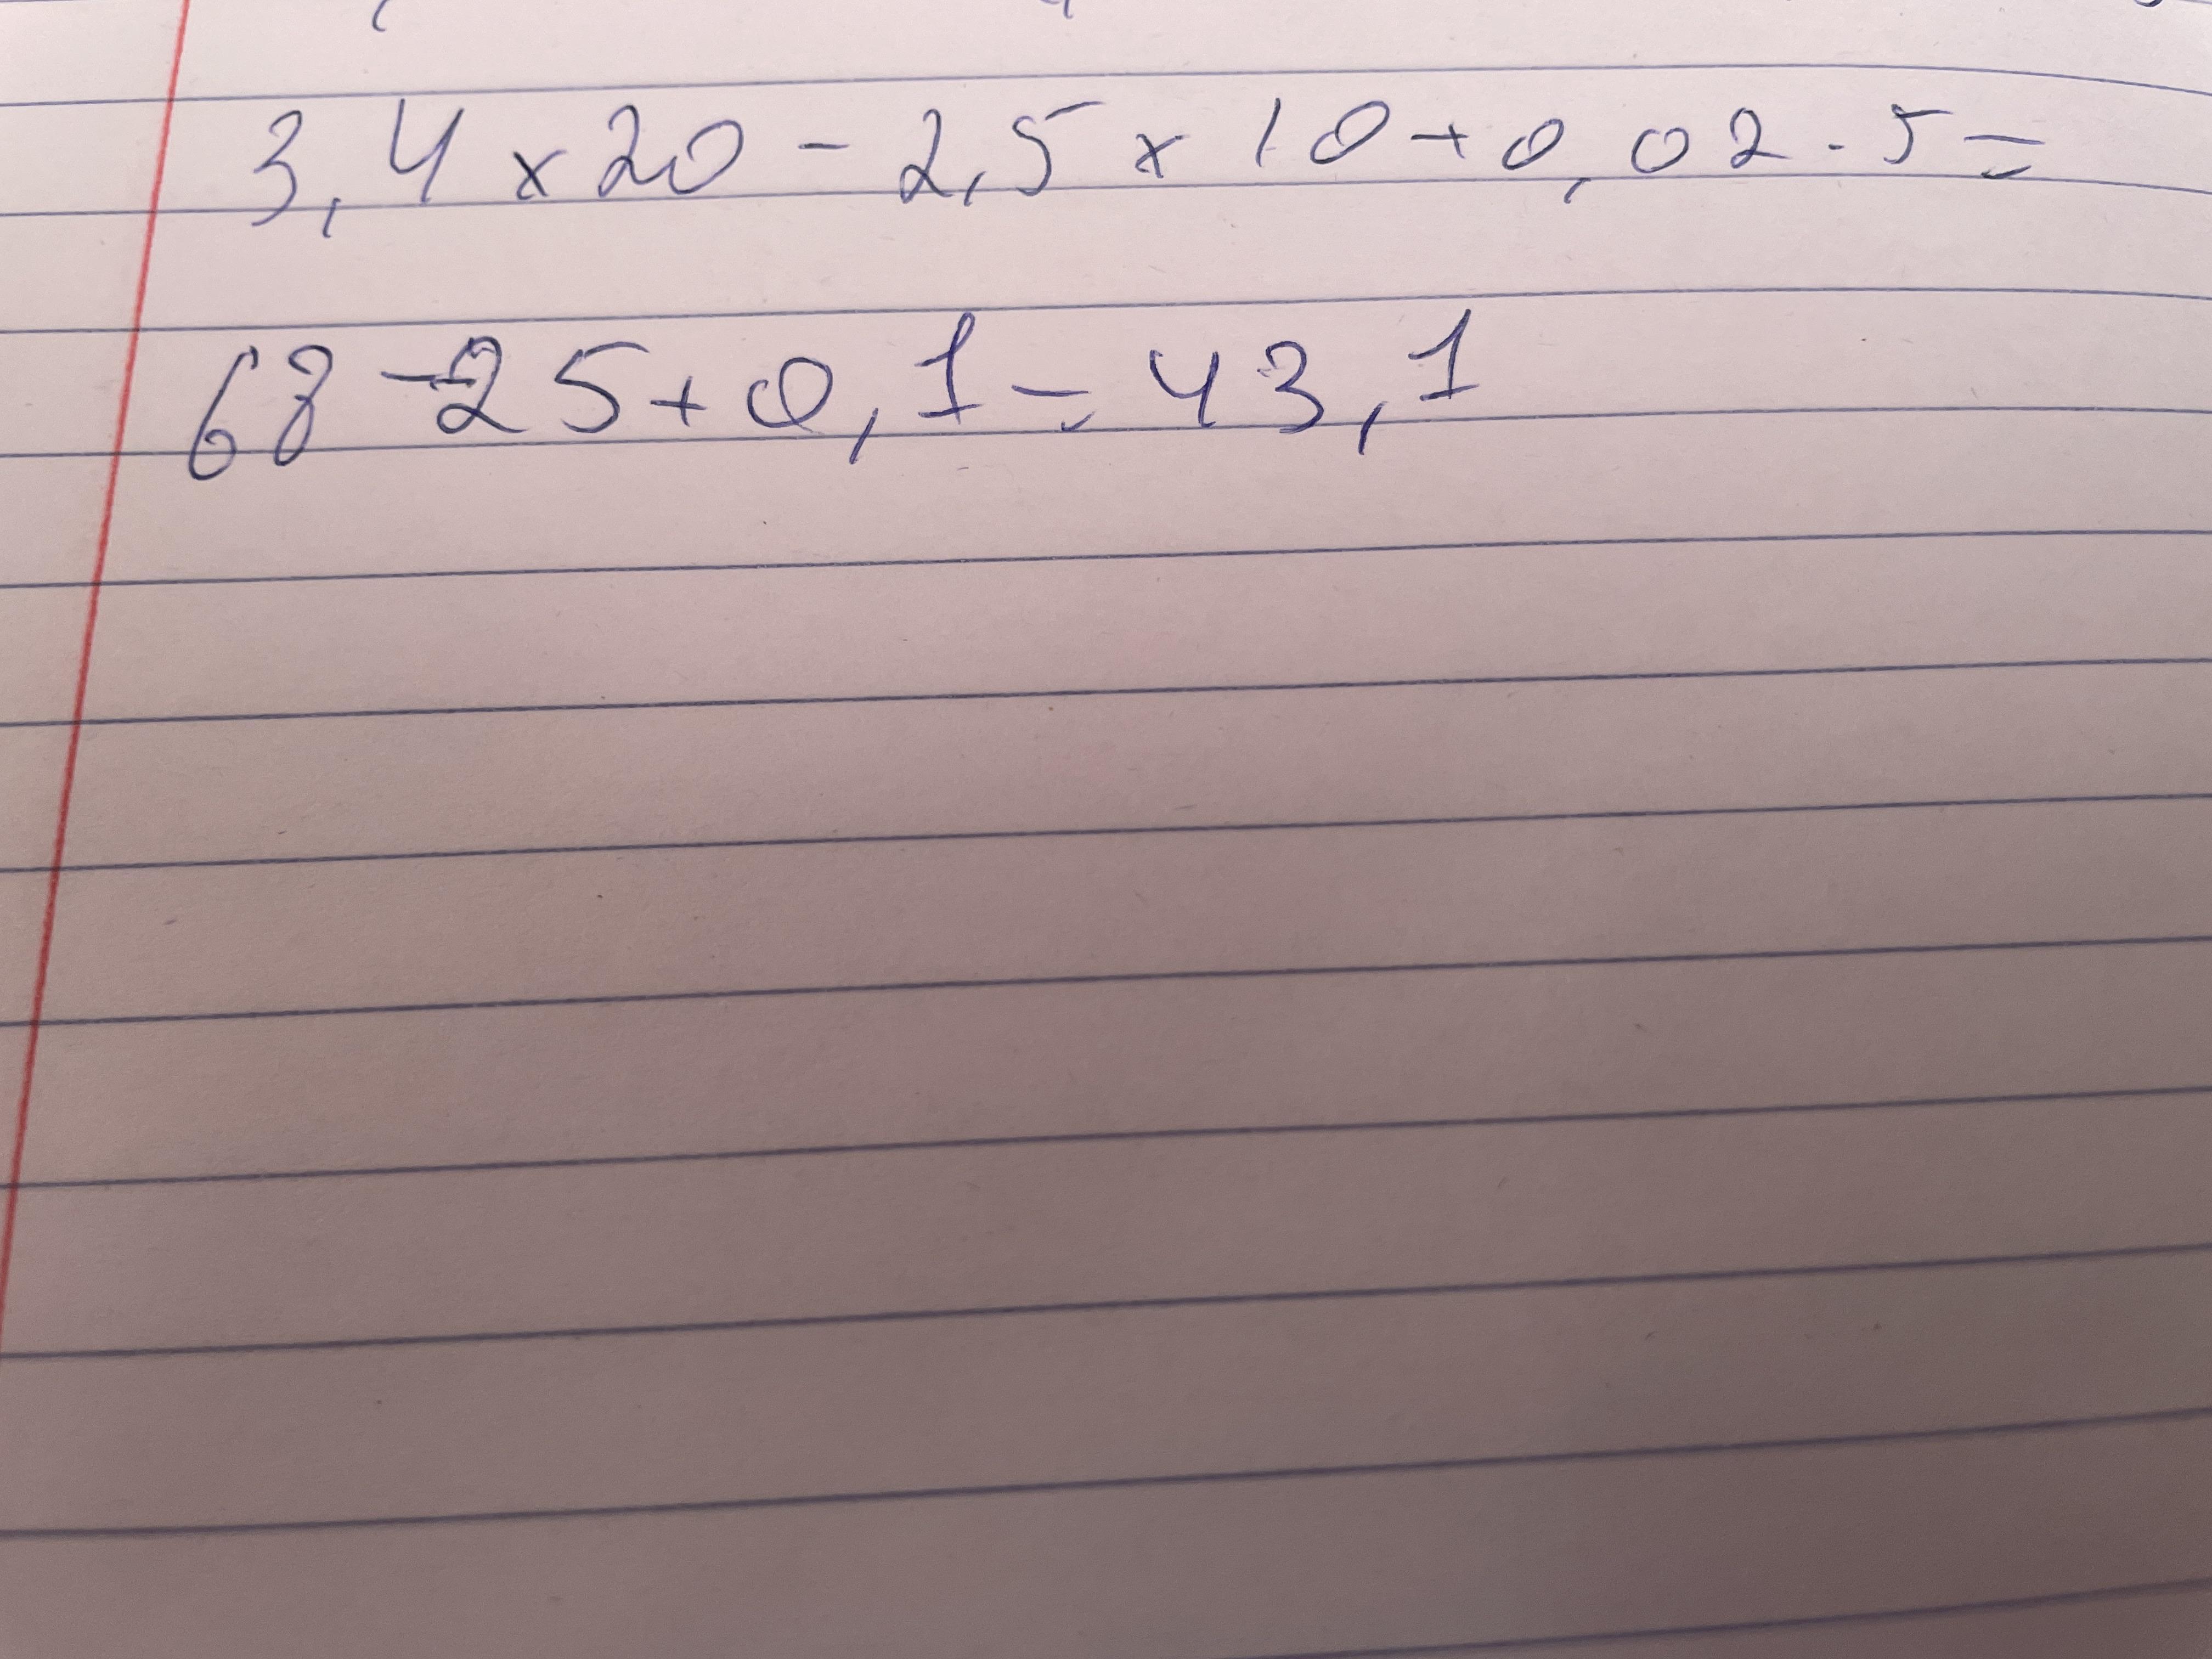 3,4 x 20 - 2,5 x 10 + 0,02 . 5 =
68 - 25 + 0,1 = 43,1